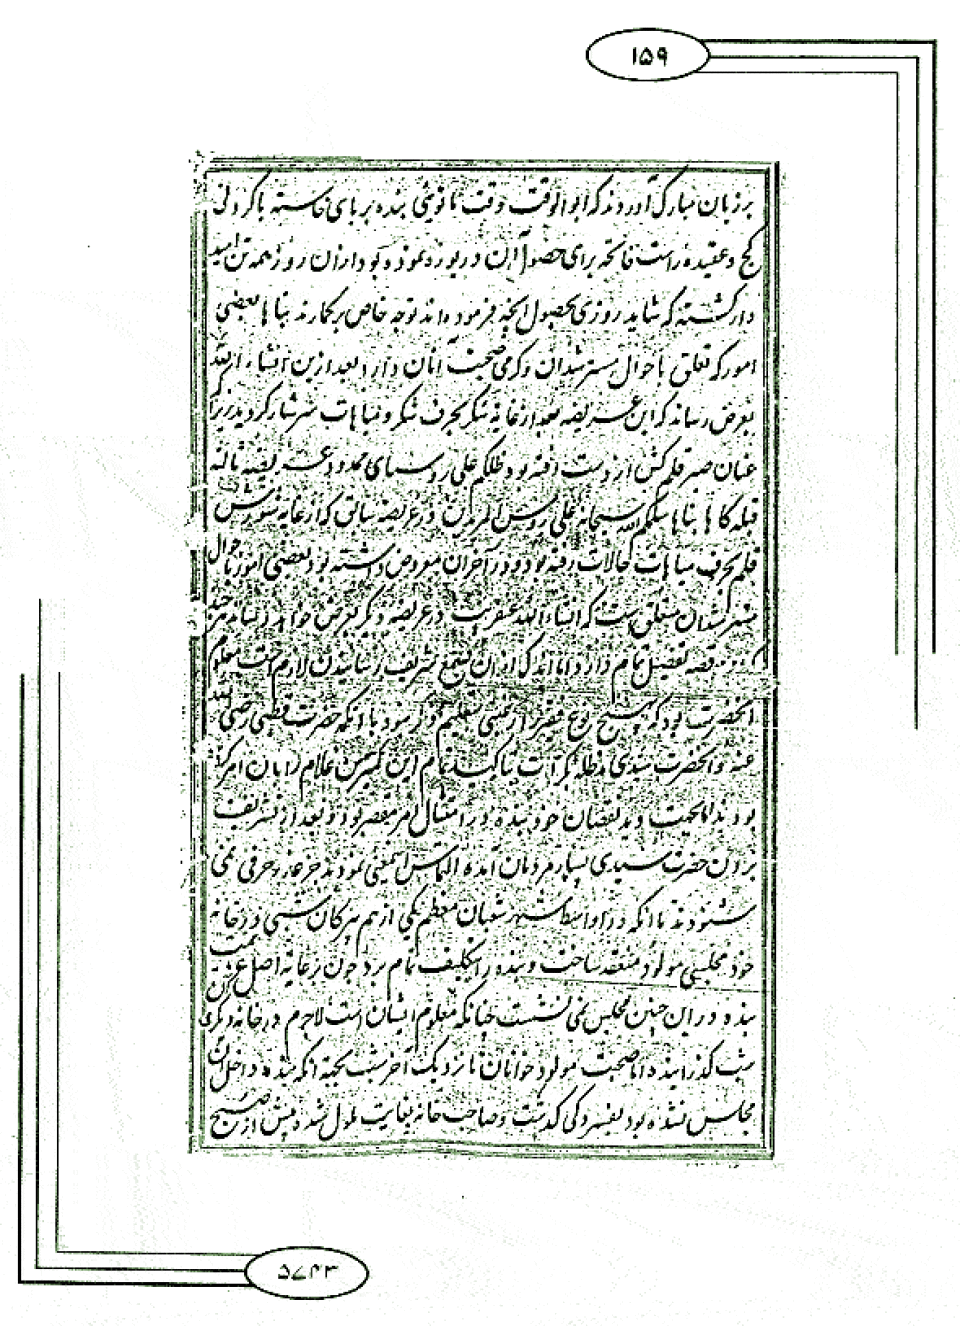 ۱۵۹
بر زبان مبارک آوردند که ابو الوقت وقت بنده بر پای خاسته با کردنی
کج و عقیده راست فاتحه برای حصول آن دریوزه نموده بود ازان روز همه تن امید
دار گشته که شاید روزی بحصول آنچه فرموده اند توجه خاص بر گمارند بنابا بعضی
امور که تعلق باحوال مسترشدان و گرمی صحبت آنان دارد بعد ازین انشاء الله
بعرض رساند که این عریضه بعد از غایه شکر بحرف شکر و مباهات سرشار گردید زیرا
عنان صبر قلم کش از دست رفته بود ظلکم علی روسنای ممدود عریضه ثالثه
قبله گاها بناها سلمکم الله سبحانه علی رؤس المریدین در عریضه سابق که از غایه شورش
قلم بحرف مباهات حالات رفته بود و در آخر آن معروض داشته بود بعضی امور باحوال
مسترشدان متعلق است که انشاء الله عنقریب در عریضه دیگر بعرض خواهد رسانید هر چند
قصه تفصیل تمام دارد اما اندکی از آن بسمع شریف رسانیدن لازم معلوم
آنحضرت بود که بهیچ نوع فقیر از معنی تعلیم ذکر نبود با آنکه حضرت قطبی رضی الله
عنه و آنحضرت سیدی مدظله کرات بتاکید تمام این کمترین غلام را بآن امر کرده
بودند اما بجهت دید نقصان خود بنده در امتثال امر مقصر بود و بعد از تشریف
بردن حضرت سیدی بسیار مردمان آمده التماس نمودند جز عار حرفی نمی
شنودند تا آنکه در اواسط شهر شعبان معظم یکی از هم پیرکان شبی در خانه
خود مجلسی مولود منعقد ساخت و بنده را بتکلیف تمام برد چون برعایه اصل عزیمت
بنده در این چنین مجلس نمی نشست چنانکه معلوم ایشان است لاجرم در خانه دیگری
شب گذرانیده اما صحبت مولود خوانان تا نزدیک آخر شب بجهة آنکه بنده داخل آن
مجلس نشده بود بفسردگی گذشت و صاحب خانه بغایت ملول شد پیش از صبح
۵۷۴۳